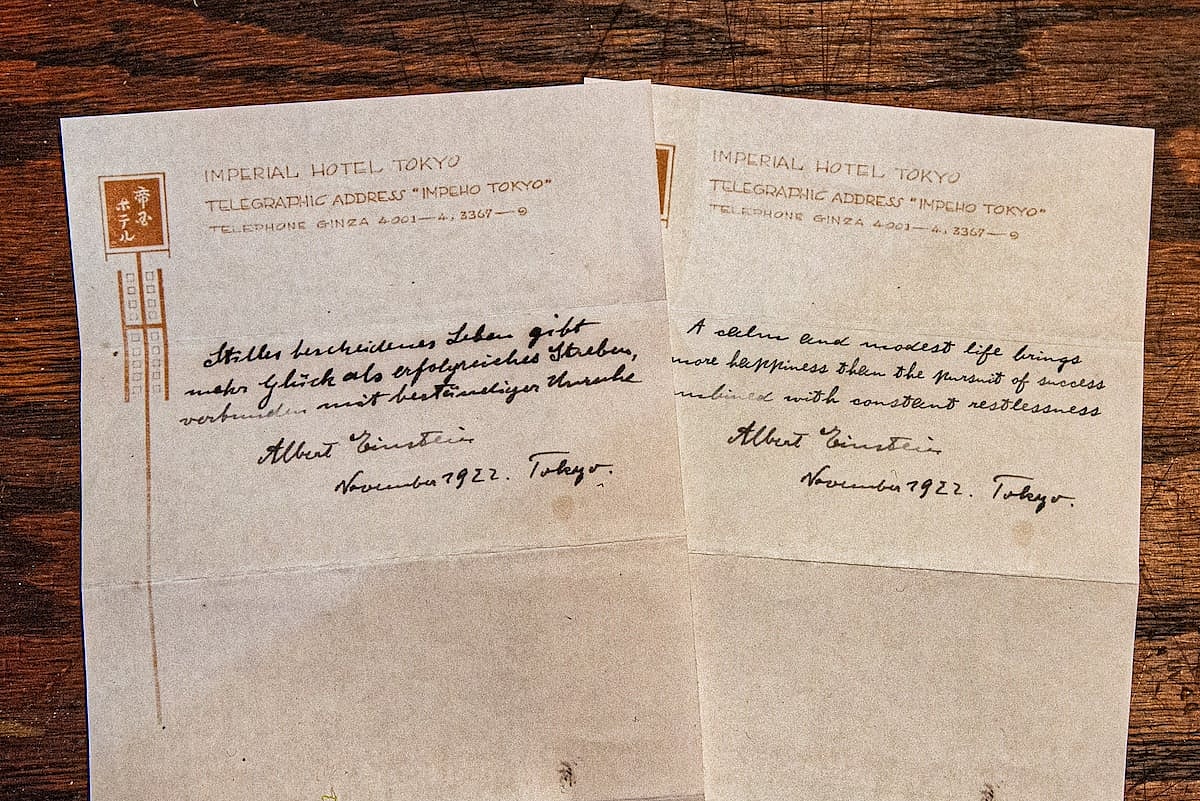 帝国
ホテル
IMPERIAL HOTEL TOKYO
TELEGRAPHIC ADDRESS "IMPEHO TOKYO"
TELEPHONE GINZA 4001—4, 3367—9
Stilles bescheidenes Leben gibt
mehr Glück als erfolgreiches Streben,
verbunden mit beständiger Unruhe
Albert Einstein
November 1922. Tokyo.
IMPERIAL HOTEL TOKYO
TELEGRAPHIC ADDRESS "IMPEHO TOKYO"
TELEPHONE GINZA 4001—4, 3367—9
A calm and modest life brings
more happiness than the pursuit of success
mbined with constant restlessness
Albert Einstein
November 1922. Tokyo.